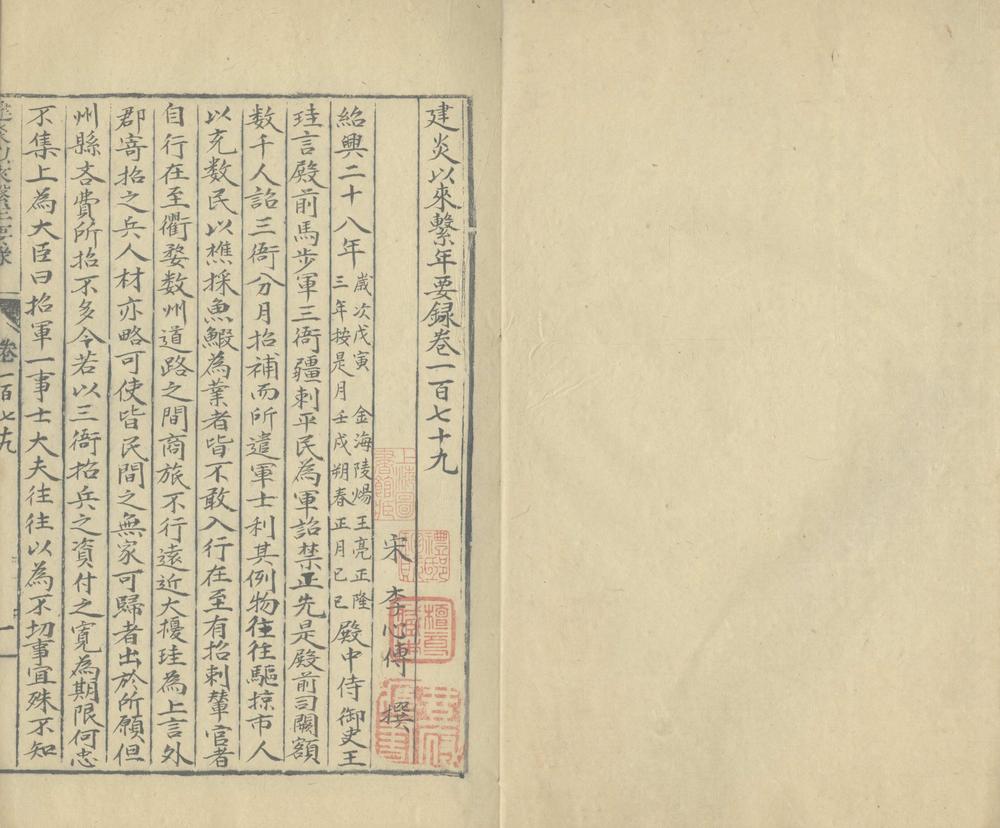 建炎以來繫年要録卷一百七十九
宋 李心傳 撰
紹興二十八年
歳次戊寅 金海陵煬王亮正隆
三年按是月壬戌朔春正月己巳
殿中侍御史王
珪言殿前馬步軍三衙彊刺平民為軍詔禁正先是殿前司闕額
数千人詔三衙分月招補而所遣軍士利其例物往往驅掠市人
以充数民以樵採魚鰕為業者皆不敢入行在至有招刺輦官者
自行在至衢婺数州道路之間商旅不行遠近大擾珪為上言外
郡寄招之兵人材亦略可使皆民間之無家可歸者出於所願但
州縣吝費所招不多令若以三衙招兵之資付之寛為期限何患
不集上為大臣曰招軍一事士大夫往往以為不切事宜殊不知
建炎以來繫年要録
卷一百七十九
一
上海圖書館藏